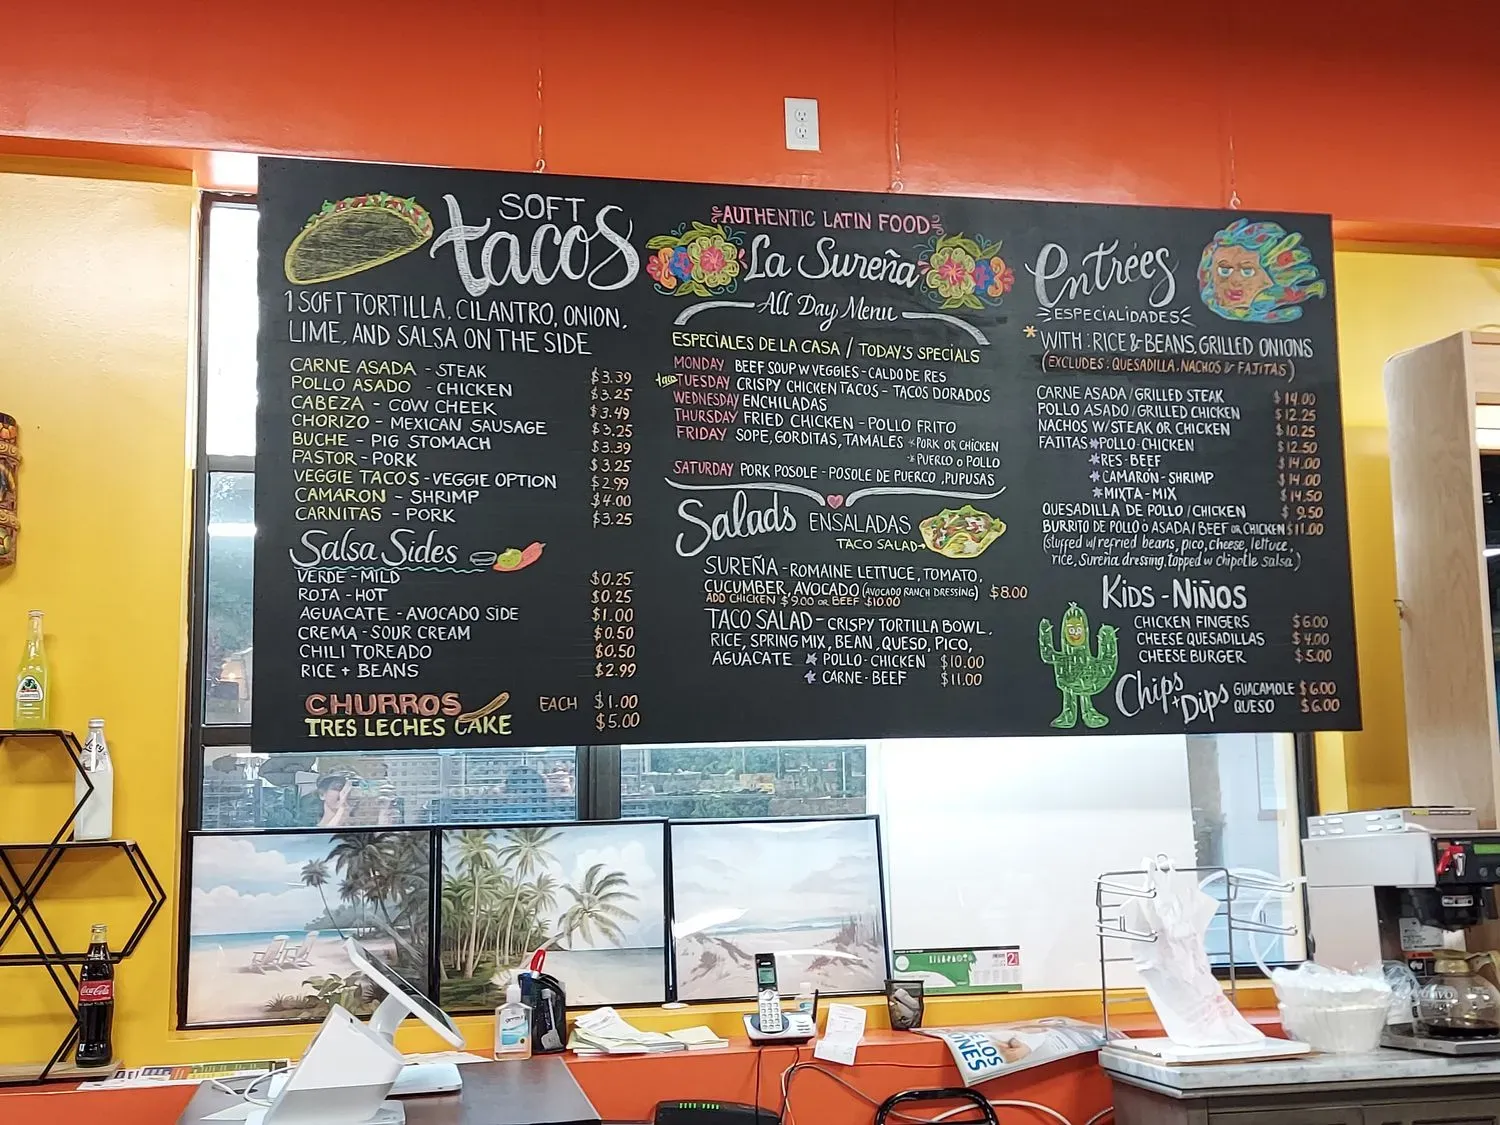 SOFT
tacos
1 SOFT TORTILLA, CILANTRO, ONION,
LIME, AND SALSA ON THE SIDE
CARNE ASADA - STEAK $3.39
POLLO ASADO - CHICKEN $3.25
CABEZA - COW CHEEK $3.49
CHORIZO - MEXICAN SAUSAGE $3.25
BUCHE - PIG STOMACH $3.39
PASTOR - PORK $3.25
VEGGIE TACOS - VEGGIE OPTION $2.99
CAMARON - SHRIMP $4.00
CARNITAS - PORK $3.25
Salsa Sides
VERDE - MILD $0.25
ROJA - HOT $0.25
AGUACATE - AVOCADO SIDE $1.00
CREMA - SOUR CREAM $0.50
CHILI TOREADO $0.50
RICE + BEANS $2.99
CHURROS EACH $1.00
TRES LECHES CAKE $5.00
AUTHENTIC LATIN FOOD
La Sureña
All Day Menu
ESPECIALES DE LA CASA / TODAY'S SPECIALS
MONDAY BEEF SOUP W VEGGIES - CALDO DE RES
taco TUESDAY CRISPY CHICKEN TACOS - TACOS DORADOS
WEDNESDAY ENCHILADAS
THURSDAY FRIED CHICKEN - POLLO FRITO
FRIDAY SOPE, GORDITAS, TAMALES *PORK OR CHICKEN
*PUERCO o POLLO
SATURDAY PORK POSOLE - POSOLE DE PUERCO, PUPUSAS
Salads ENSALADAS
TACO SALAD→
SUREÑA - ROMAINE LETTUCE, TOMATO,
CUCUMBER, AVOCADO (AVOCADO RANCH DRESSING) $8.00
ADD CHICKEN $9.00 OR BEEF $10.00
TACO SALAD - CRISPY TORTILLA BOWL,
RICE, SPRING MIX, BEAN, QUESO, PICO,
AGUACATE * POLLO - CHICKEN $10.00
* CARNE - BEEF $11.00
Entrées
ESPECIALIDADES
* WITH: RICE & BEANS, GRILLED ONIONS
(EXCLUDES: QUESADILLA, NACHOS & FAJITAS)
CARNE ASADA / GRILLED STEAK $14.00
POLLO ASADO / GRILLED CHICKEN $12.25
NACHOS W/ STEAK OR CHICKEN $10.25
FAJITAS *POLLO - CHICKEN $12.50
*RES - BEEF $14.00
*CAMARON - SHRIMP $14.00
*MIXTA - MIX $14.50
QUESADILLA DE POLLO / CHICKEN $9.50
BURRITO DE POLLO o ASADA / BEEF OR CHICKEN $11.00
(stuffed w/ refried beans, pico, cheese, lettuce,
rice, Sureña dressing, topped w chipotle salsa)
KIDS - NIÑOS
CHICKEN FINGERS $6.00
CHEESE QUESADILLAS $4.00
CHEESE BURGER $5.00
Chips + Dips
GUACAMOLE $6.00
QUESO $6.00
Coca-Cola